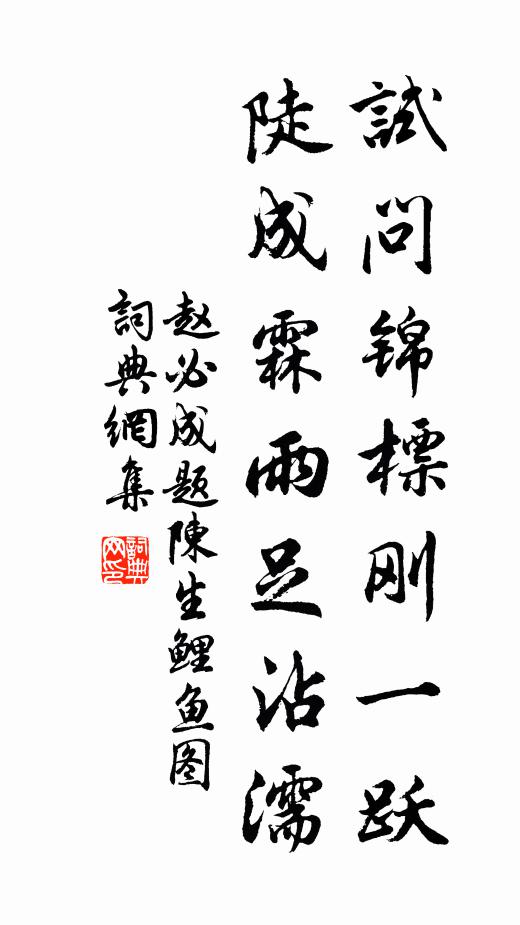 試問锦標刚一跃
陡成霖雨足沾濡
赵必成题陳生鯉鱼图
詞典網集
詞典
网印